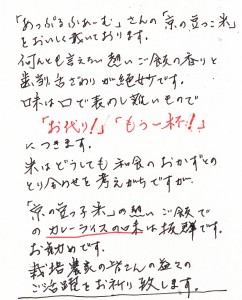 「あっぷるふぁーむ」さんの「京の豆っこ米」
をおいしく戴いております。
何んとも言えない 甘い ご飯の香りと
歯割 舌ざわりが絶妙です。
味は口で表わし難いもので
「お代り!」「もう一杯!」
につきます。
米はどうしても 和食のおかずとの
とり合わせを考えがちですが、
「京の豆っ子米」の 甘い ご飯で
の カレーライスの味は抜群です。
お勧めです。
栽培農家の皆さんの益々の
ご活躍をお祈り致します。